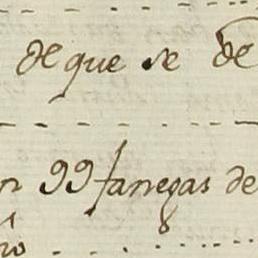 de que se de
n 99 fanegas de